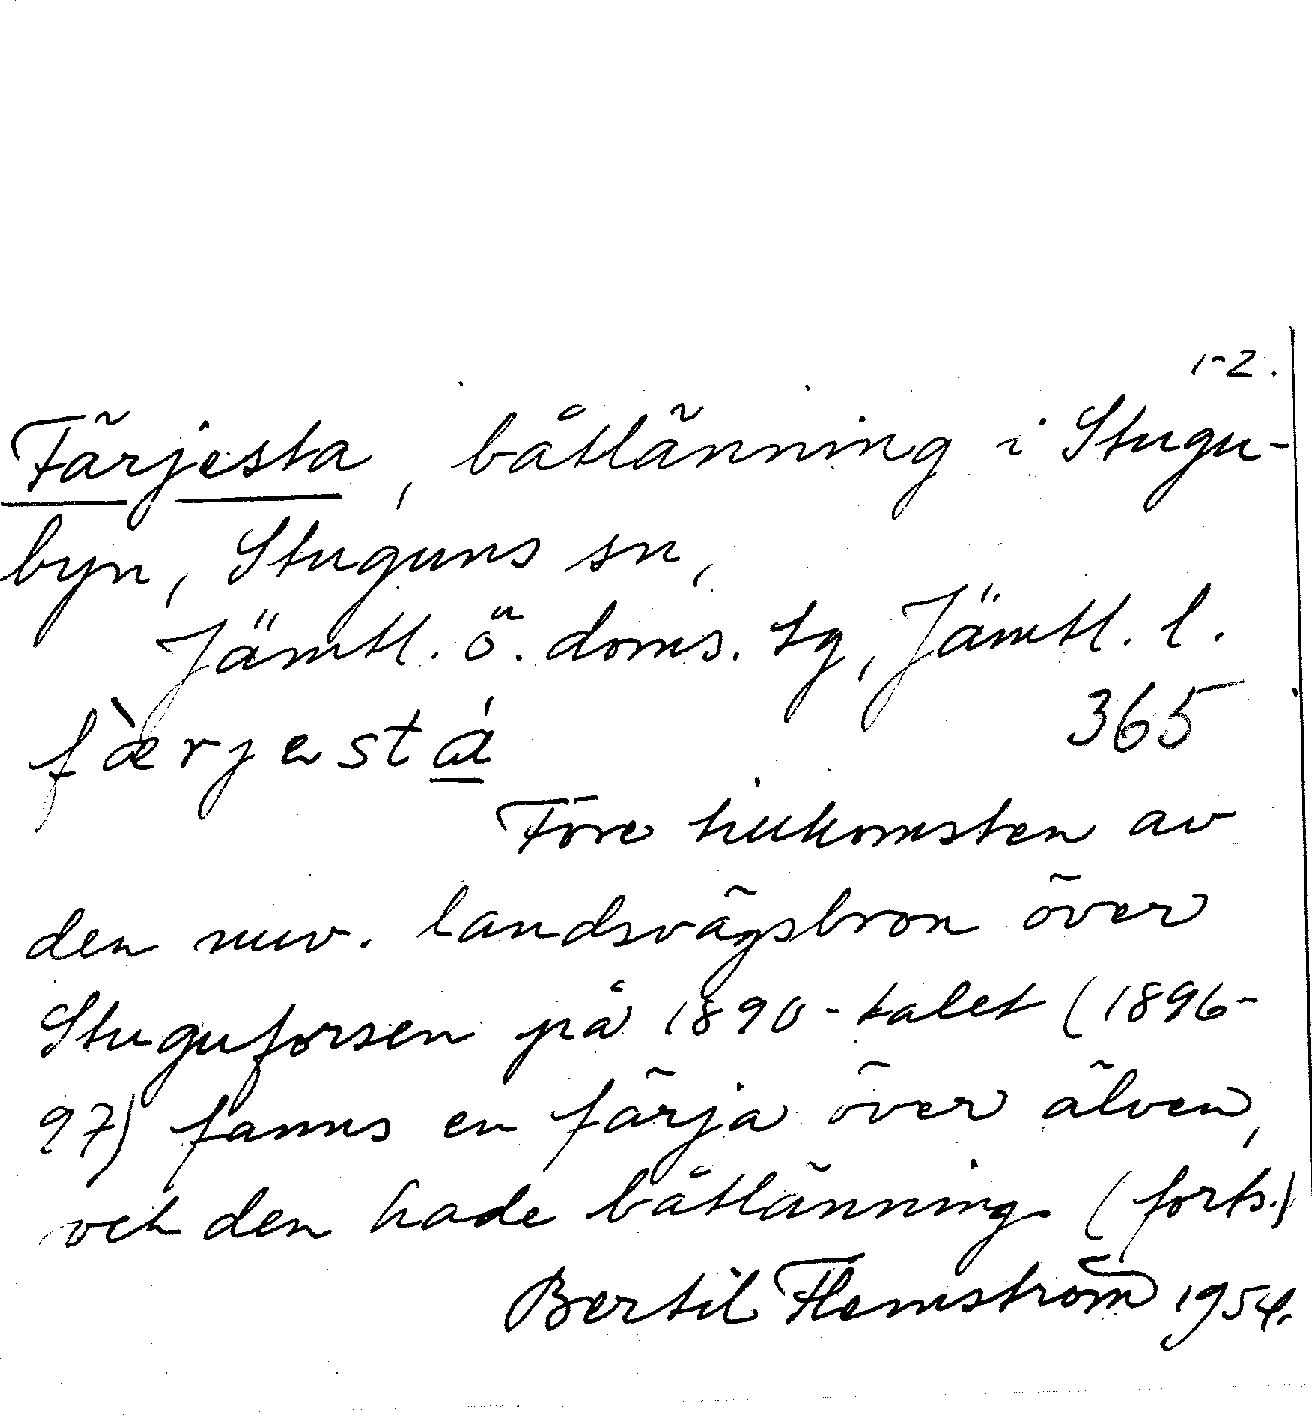 1-2.
Färjesta, båtlänning i Stugu-
byn, Stuguns sn,
Jämtl. ö. doms. tg, Jämtl. l.
fæ̀rjestá 365
Före tillkomsten av
den nuv. landsvägsbron över
Stuguforsen på 1890-talet (1896-
97) fanns en färja över älven,
och den hade båtlänning. (forts.)
Bertil Flemström 1954.